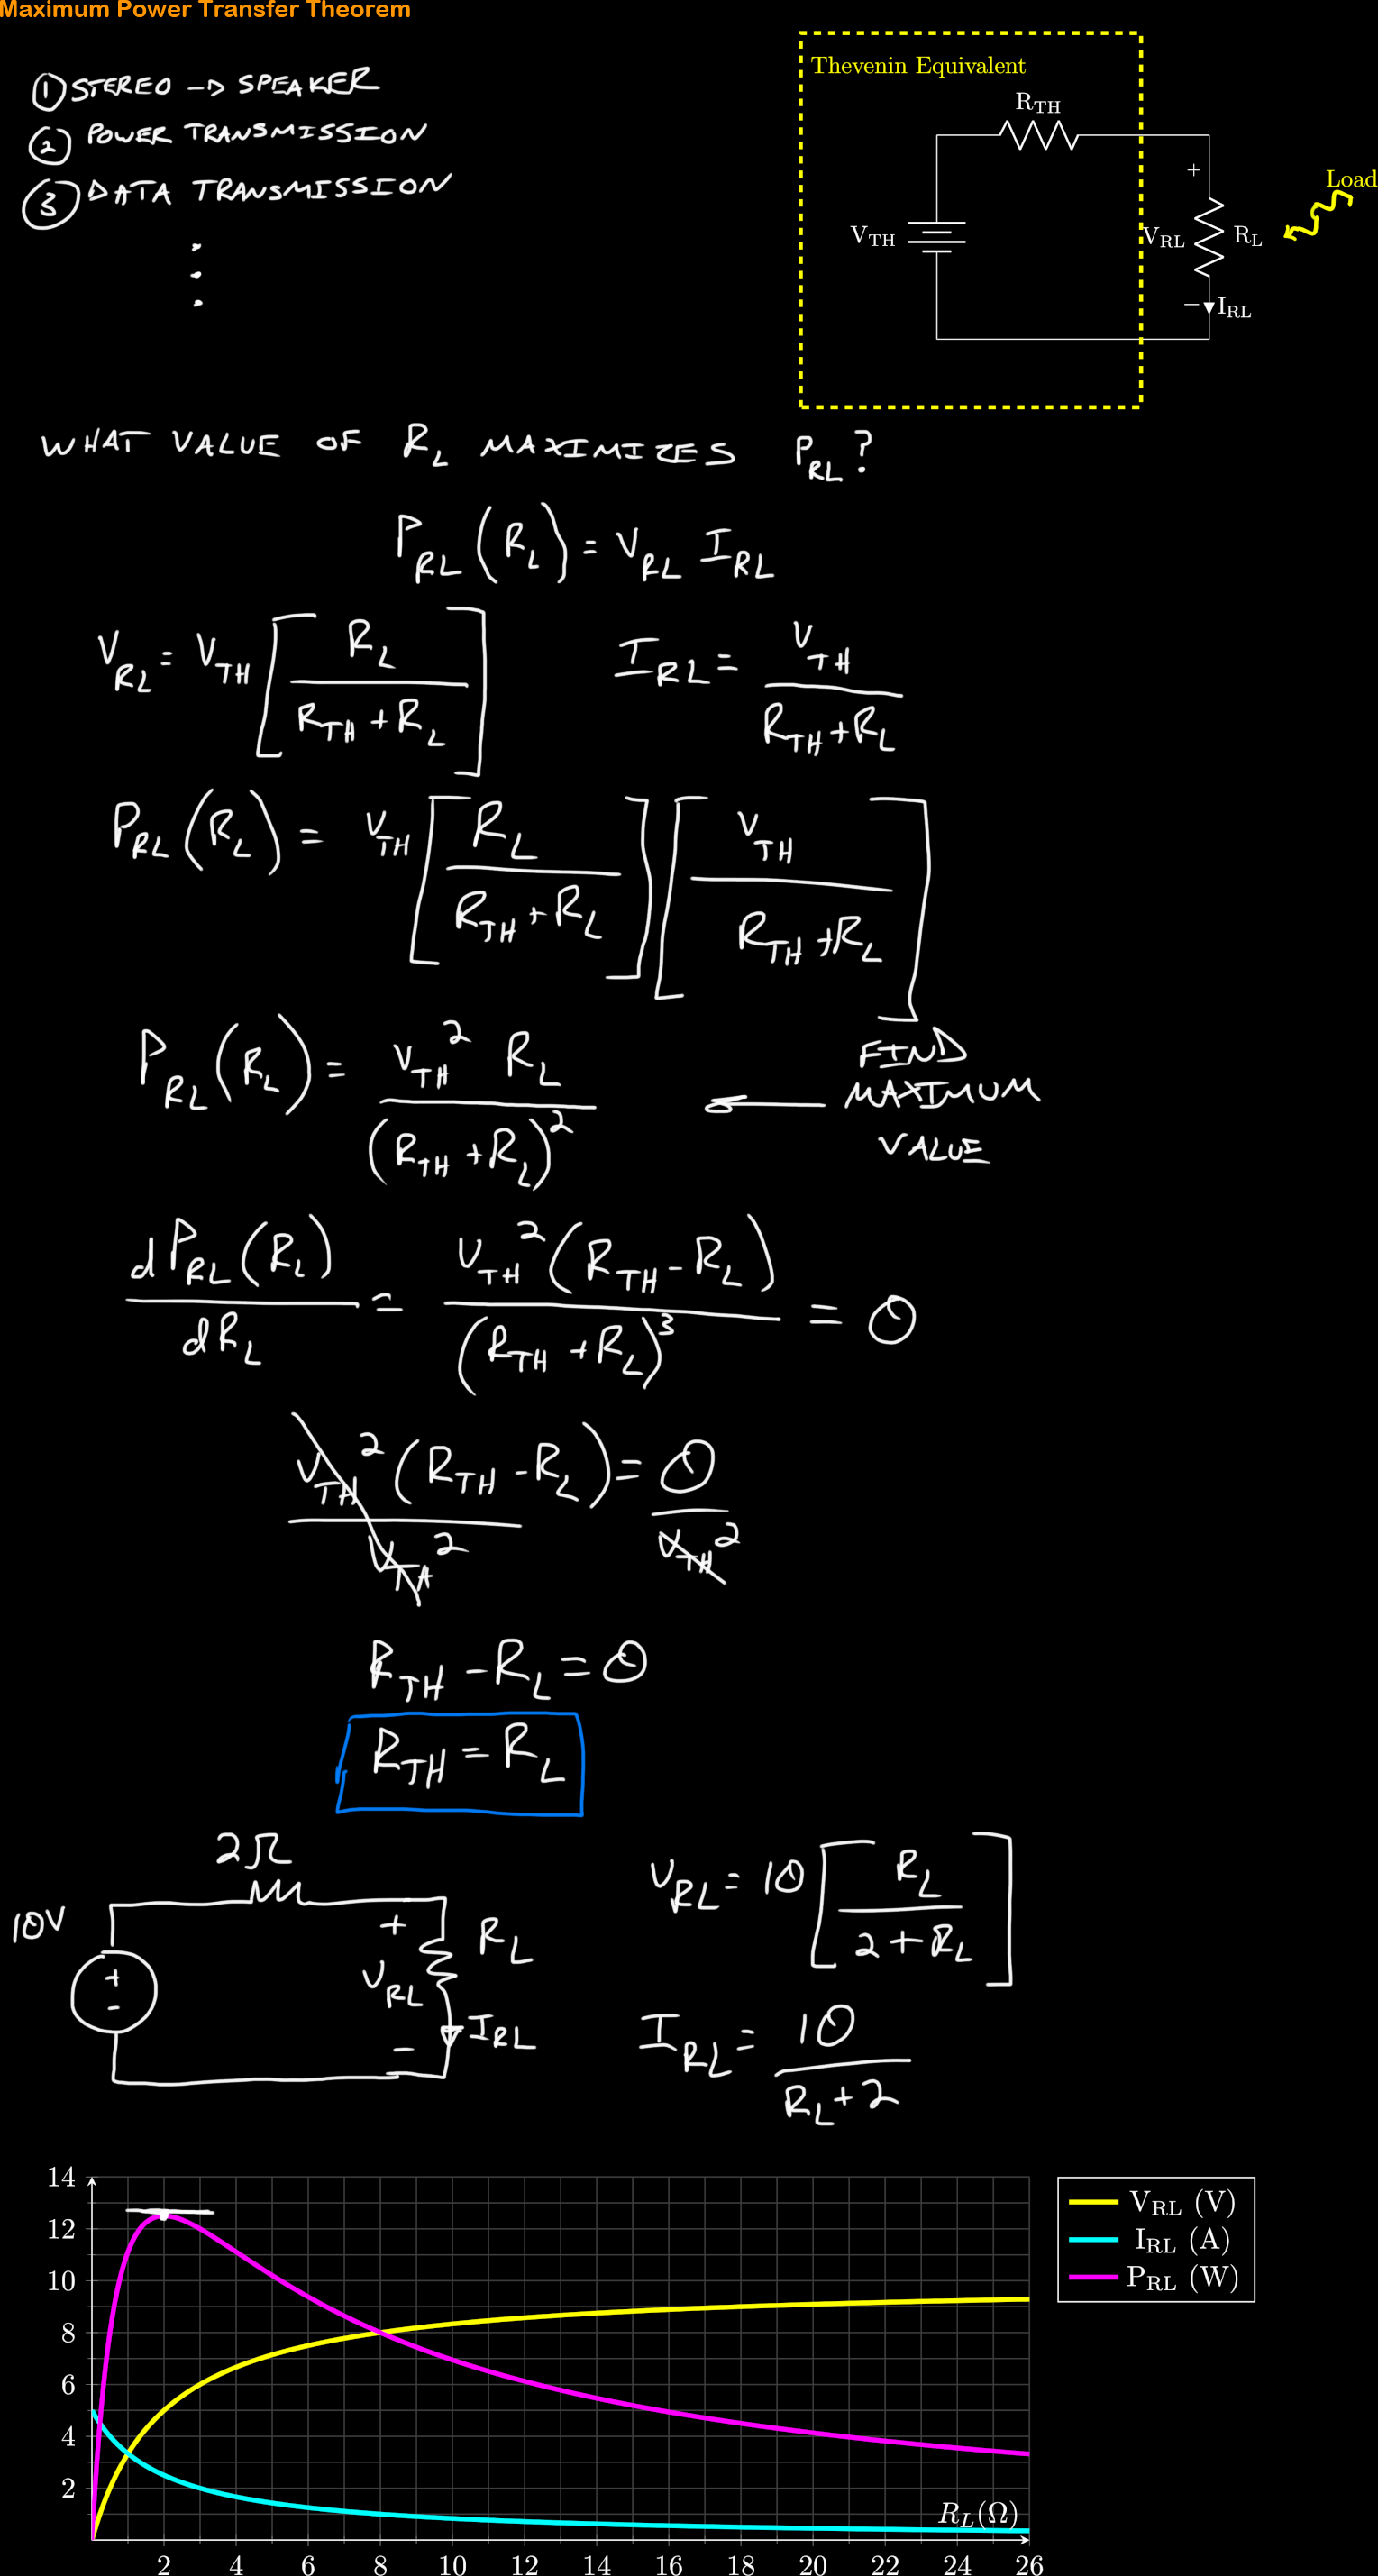 Maximum Power Transfer Theorem
① STEREO → SPEAKER
② POWER TRANSMISSION
③ DATA TRANSMISSION
Thevenin Equivalent
R_TH
+
Load
V_TH
V_RL
R_L
−
I_RL
WHAT VALUE OF R_L MAXIMIZES P_RL?
P_RL(R_L) = V_RL I_RL
V_RL = V_TH [R_L / (R_TH + R_L)]
I_RL = V_TH / (R_TH + R_L)
P_RL(R_L) = V_TH [R_L / (R_TH + R_L)] [V_TH / (R_TH + R_L)]
P_RL(R_L) = V_TH² R_L / (R_TH + R_L)²
← FIND
MAXIMUM
VALUE
dP_RL(R_L) / dR_L = V_TH² (R_TH − R_L) / (R_TH + R_L)³ = 0
V_TH² (R_TH − R_L) / V_TH² = 0 / V_TH²
R_TH − R_L = 0
R_TH = R_L
2Ω
10V
+
−
+
V_RL
−
R_L
I_RL
V_RL = 10 [R_L / (2 + R_L)]
I_RL = 10 / (R_L + 2)
14
12
10
8
6
4
2
V_RL (V)
I_RL (A)
P_RL (W)
R_L(Ω)
2 4 6 8 10 12 14 16 18 20 22 24 26